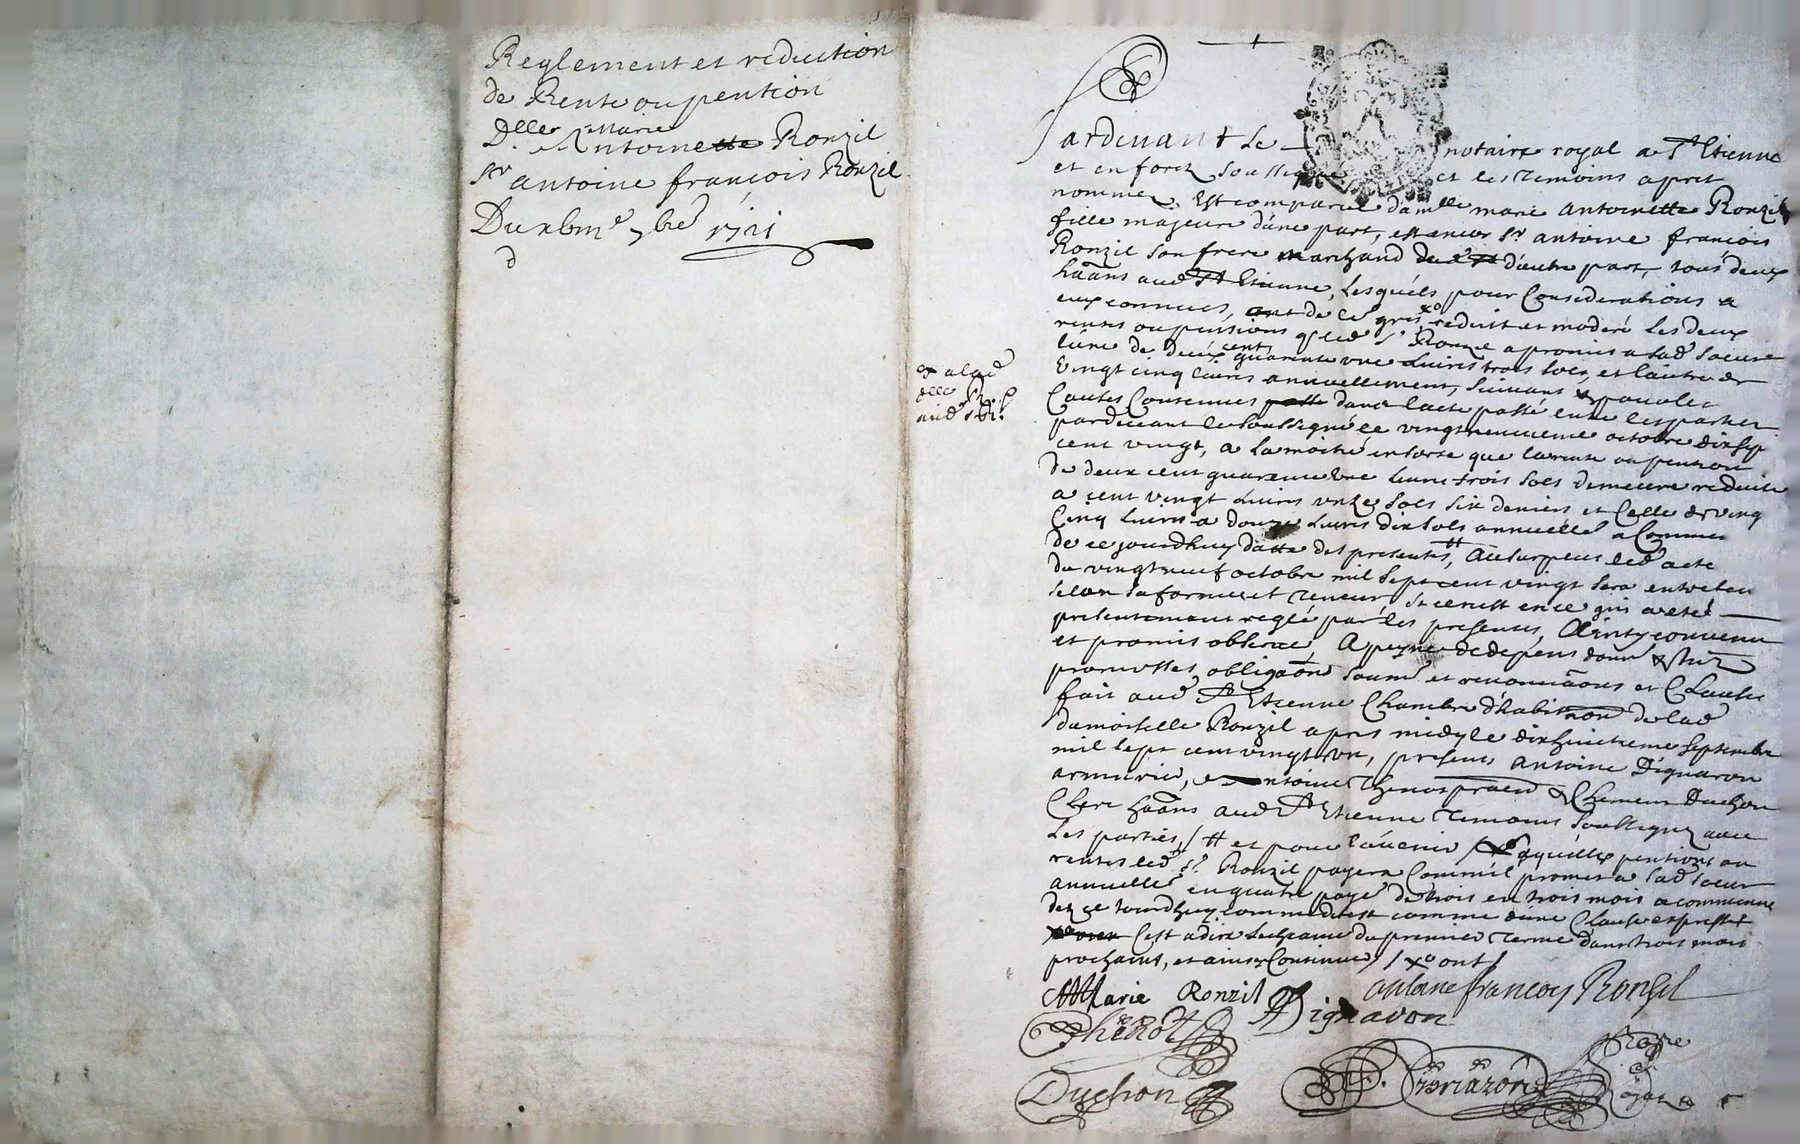 Reglement et reduction
de Rente ou pention
Dlle Marie
Antoinette Ronzil
sr antoine françois Ronzil
Du xbme 7bre 1721
d
x a lad
dlle
aud
Pardevant le notaire royal a St Etienne
et en forez soussigné et les temoins apres
nommez, Est comparue damlle marie antoinette Ronzil
fille majeure d'une part, et ancor sr antoine françois
Ronzil son frere marchand d'autre part, tous deux
haans aud St Etienne, lesquels pour Considerations a
eux connues, ont de le gré xo reduit et moderé les deux
rentes ou pensions q led Sr Ronzil a promis a lad soeur
l'une de deux cent quarante une Livres trois sols, et l'autre de
Vingt cinq livres annuellement, suivant &
Causes Contenues dans l'acte passé entre les parties
pardevant le soussigné le vingt neuvieme octobre dix sept
cent vingt, a la moitié en sorte que la rente ou pention
de deux cent quarante une livre trois sols demeure reduite
a cent vingt Livres unze sols six deniers et Celle de vingt
Cinq Livres a douze Livres dix sols annuelle a Commen
de ce jourdhuy datte des presentes, Au surplus led acte
du vingt neuf octobre mil sept cent vingt sera entretenu
selon sa forme et teneur, si ce n'est en ce qui a eté
presentement reglé par les presentes, Ainsy convenu
et promis observé, A peyne de depens dom &
promesses obligaôns soum et renonciaôns et Clauses
fait aud St Etienne Chambre d'habitaôn de lad
damoiselle Ronzil apres midy le dix huitieme septembre
mil sept cent vingt un, presents antoine Dignaron
armurier, antoine Thenot praticn & Clement Duchon
Clerc haans aud St Etienne temoins soussignez avec
les parties / # et pour l'avenir / xo lesquelles pentions ou
rentes led Sr Ronzil payera Comm'il promet a lad soeur
annuelle en quatre payes de trois en trois mois a commence
dez ce jourdhuy comme dune Clause expresse
C'est a dire l'echeance du premier terme dans trois mois
prochains, et ainsy Continuer / xo ont /
Marie Ronzil antoine françois Ronzil
Thenot Dignaron
Duchon